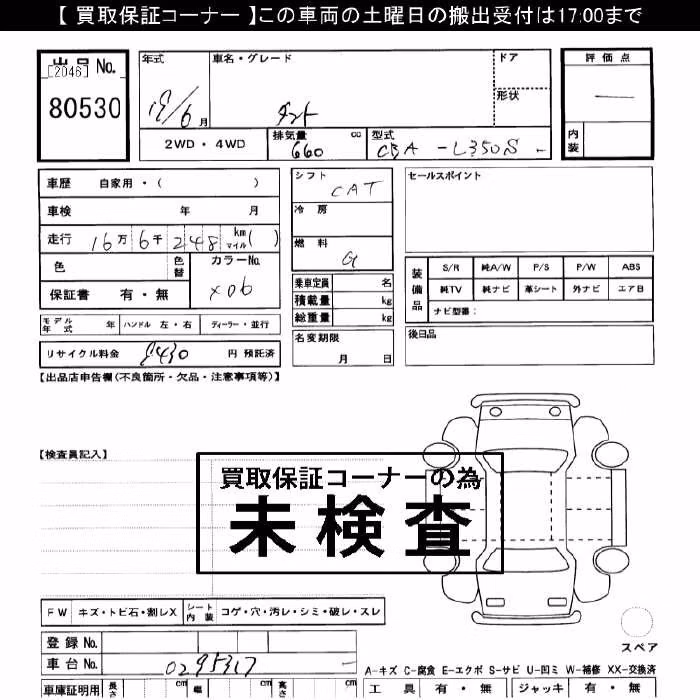 【 買取保証コーナー 】この車両の土曜日の搬出受付は17:00まで
出品 No.
[2046]
80530
年式
19/6 月
車名・グレード
タント
ドア
形状
評価点
—
内装
2WD・4WD
排気量 cc
660
型式
CBA -L350S -
車歴 自家用・( )
車検 年 月
走行 16万 6千 248 km マイル( )
色
色替
カラーNo.
X06
保証書 有・無
シフト
CAT
冷房
燃料
G
乗車定員 名
積載量 kg
総重量 kg
セールスポイント
装備品
S/R 純A/W P/S P/W ABS
純TV 純ナビ 革シート 外ナビ エア日
ナビ型番:
モデル年式 年 ハンドル 左・右 ディーラー・並行
リサイクル料金 円 預託済
名変期限
月 日
後日品
【出品店申告欄(不良箇所・欠品・注意事項等)】
【検査員記入】
買取保証コーナーの為
未検査
FW キズ・トビ石・割レX シート内装 コゲ・穴・汚レ・シミ・破レ・スレ
スペア
登録 No.
車台 No. 0295317 —
車庫証明用 長さ cm 幅 cm 高さ cm
A-キズ C-腐食 E-エクボ S-サビ U-凹ミ W-補修 XX-交換済
工具 有・無 ジャッキ 有・無